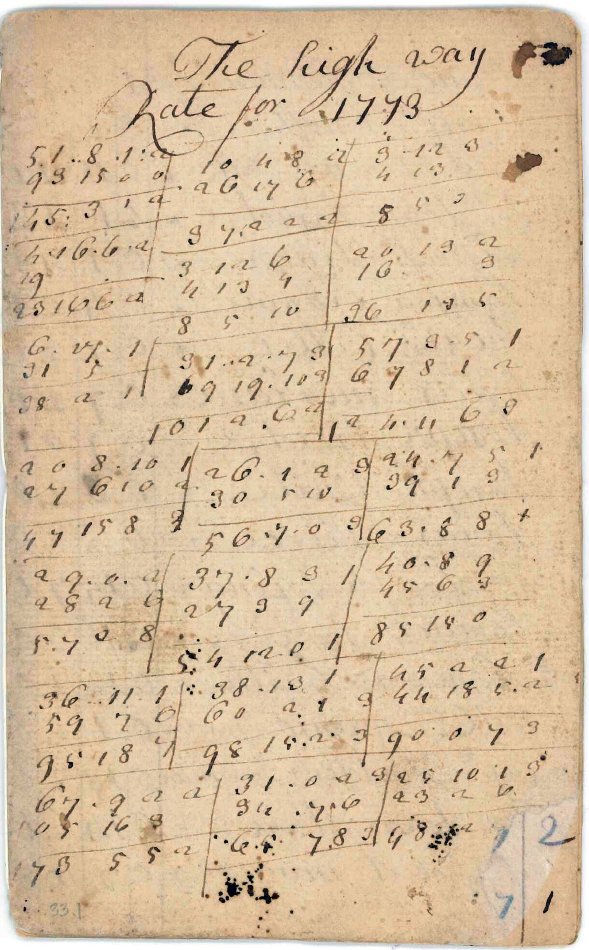 The high way
Rate for 1773
51.8.1.2 10 4 8 2 3 12 3
93 15 0 0 26 17 6 4 13
145.3 1 2 37.2 2 2 8 5 3
4 16.6.2 3 12 6 20 13 2
19 4 13 4 16 3
23 16 6 2 8 5 10 36 13 5
6.17.1 31.2.7 3 57 3.5 1
31 5 69 19.10 3 67 8 1 2
38 2 1 101 2.6 2 124.11 6 3
20 8.10 1 26.1 2 3 24.7 5 1
27 6 10 2 30 5 10 39 1 3
47 15 8 3 56.7.0 3 63.8 8 1
29.0.2 37.8 3 1 40.8 9
28 2 6 27 3 9 45 6 3
57 2 8 64 12.0 1 85 15 0
36.11 1 38.13 1 45 2 2 1
59 7 6 60 2 1 3 44 18 5.2
95 18 7 98 15.2.3 90 0 7 3
67.9 2 2 31.0 2 3 25 10 1 3
105 16 3 34.7 6 23 2 6
173 5 5 2 65 7 8 3 48
7 2
7 1
33.1